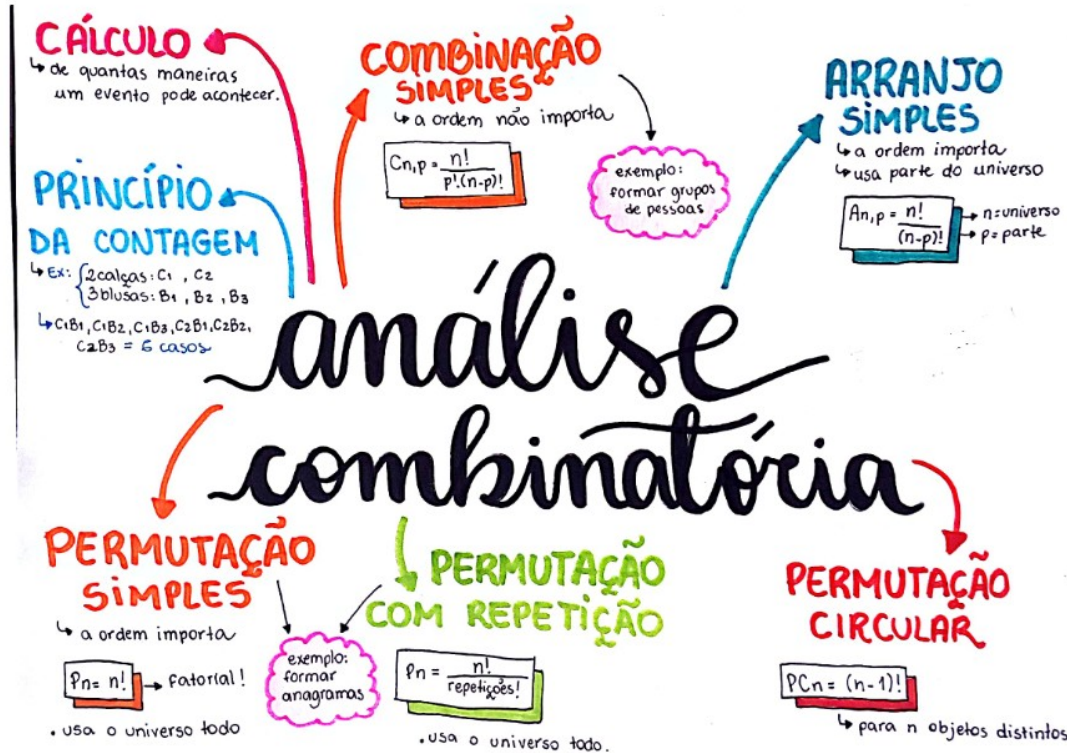 CÁLCULO
↳ de quantas maneiras
um evento pode acontecer.
PRINCÍPIO
DA CONTAGEM
↳ Ex: { 2 calças: C1 , C2
3 blusas: B1 , B2 , B3
↳ C1B1, C1B2, C1B3, C2B1, C2B2,
C2B3 = 6 casos
COMBINAÇÃO
SIMPLES
↳ a ordem não importa
Cn,p = n!
p!.(n-p)!
exemplo:
formar grupos
de pessoas
ARRANJO
SIMPLES
↳ a ordem importa
↳ usa parte do universo
An,p = n!
(n-p)!
→ n=universo
→ p=parte
análise
combinatória
PERMUTAÇÃO
SIMPLES
↳ a ordem importa
Pn = n! → fatorial!
. usa o universo todo
exemplo:
formar
anagramas
PERMUTAÇÃO
COM REPETIÇÃO
Pn = n!
repetições!
. usa o universo todo.
PERMUTAÇÃO
CIRCULAR
PCn = (n-1)!
↳ para n objetos distintos